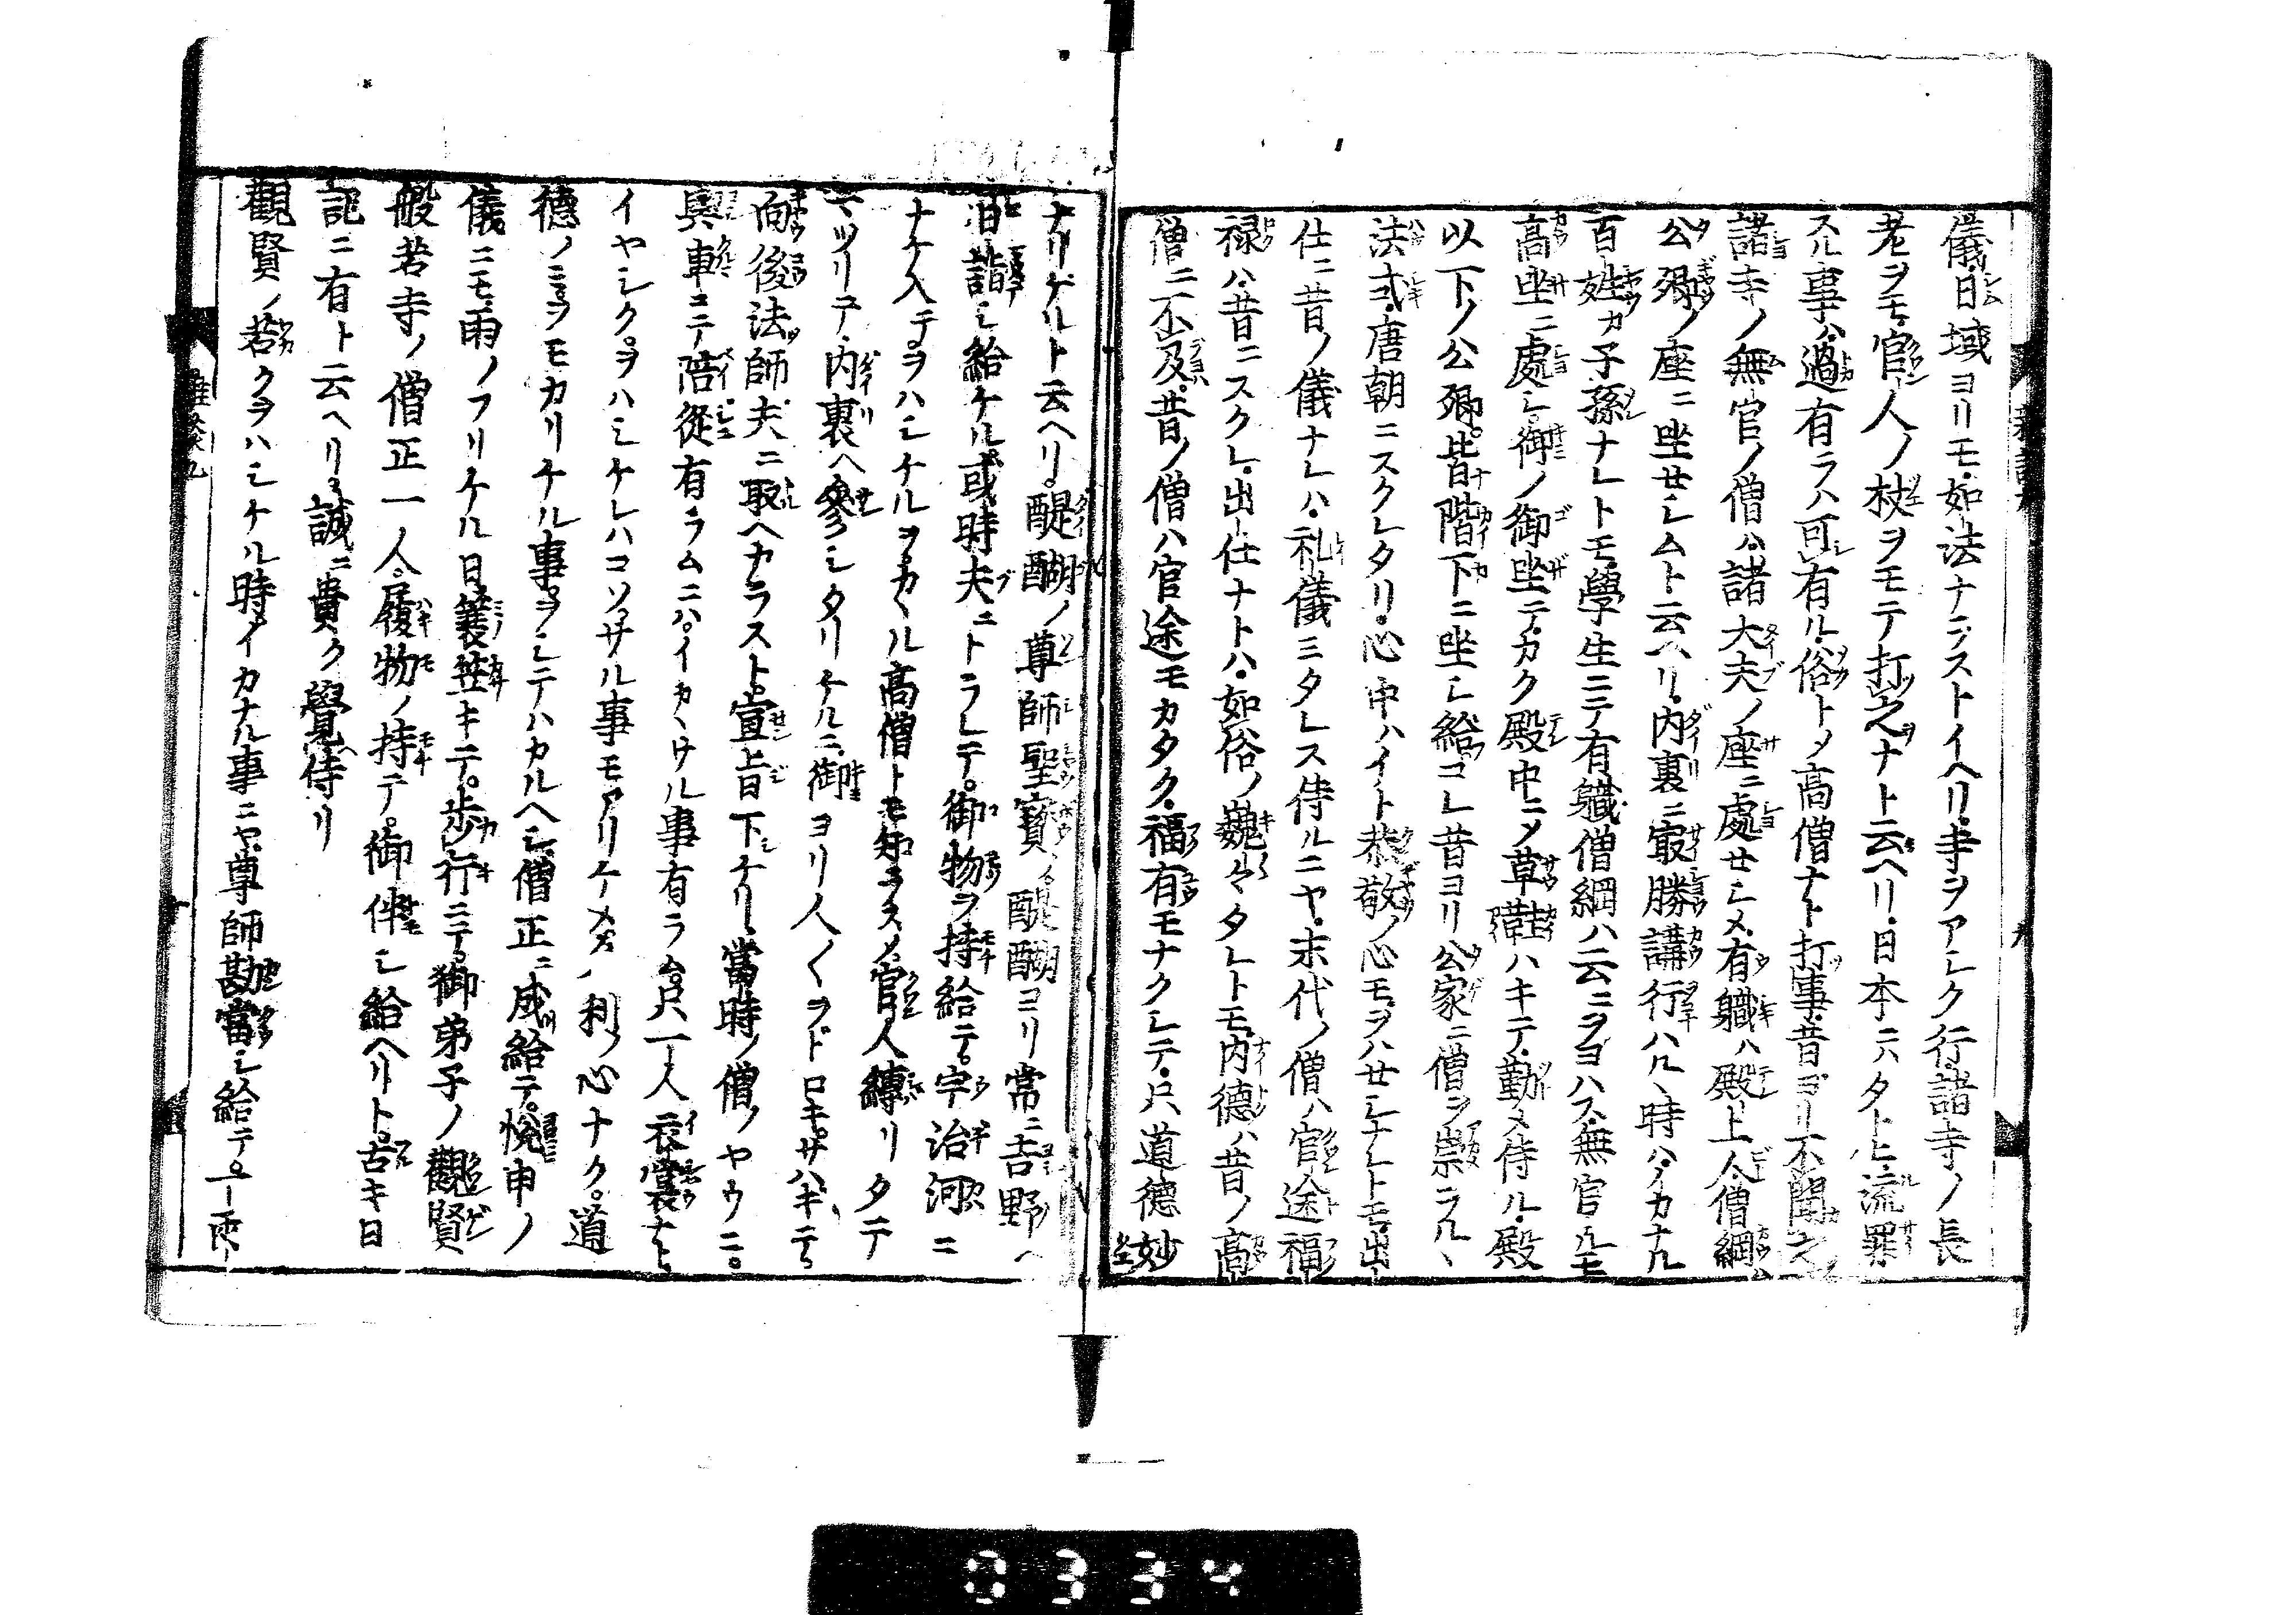 儀日域ヨリモ如法ナラズトイヘリ寺ヲアシク行諸寺ノ長
老ヲモ官人ノ杖ヲモテ打之ナト云ヘリ日本ニハタトヒ流罪
スル事ハ過有ラハ可有ル俗トメ高僧ナト打事昔ヨリ不聞之
諸寺ノ無官ノ僧ハ諸大夫ノ座ニ處セシメ有職ハ殿上人僧綱ハ
公卿ノ座ニ坐セシムト云ヘリ内裏ニ最勝講行ハルヽ時ハイカナル
百姓カ子孫ナレトモ學生ニテ有職僧綱ハ云ニヲヨハス無官ルモ
高坐ニ處シ御ノ御坐テカク殿中ニメ草鞋ハキテ勤メ侍ル殿
以下ノ公卿皆階下ニ坐シ給コレ昔ヨリ公家ニ僧ヲ崇ラルヽ
法式唐朝ニスクレタリ心中ハイト恭敬ノ心モヲハセシナレトモ出
仕ニ昔ノ儀ナレハ礼儀ミタレス侍ルニヤ末代ノ僧ハ官途福
禄ハ昔ニスクレ出仕ナトハ如俗ノ巍々タレトモ内徳ハ昔ノ高
僧ニ不及昔ノ僧ハ官途モカタク福有モナクシテ只道德妙
ナリゲルト云ヘリ醍醐ノ尊師聖寳ハ醍醐ヨリ常ニ吉野ヘ
詣シ給ケル或時夫ニトラレテ御物ヲ持給テ宇治河ニ
ナケ入テヲハシケルヲカヽル高僧トモ知ラスメ官人縛リタテ
マツリテ内裏ヘ參シタリケルニ御ヨリ人〱ヲドロキサハギテ
向後法師夫ニ取ヘカラスト宣旨下ケリ當時ノ僧ノヤウニ
輿車ニテ陪從有ラムニハイカヽサル事有ラム只一人衣裳ナト
イヤシクヲハシケレハコソサル事モアリケメ名利ノ心ナク道
德ノミヲモカリケル事ヲシテハカルヘシ僧正ニ成給テ悦申ノ
儀ニモ雨ノフリケル日蓑笠キテ歩行ニテ御弟子ノ觀賢
般若寺ノ僧正一人履物ノ持テ御伴シ給ヘリト古キ日
記ニ有ト云ヘリ誠ニ貴ク覺侍リ
觀賢ノ若クヲハシケル時イカナル事ニヤ尊師勘當シ給テ
雜談九
九
0334